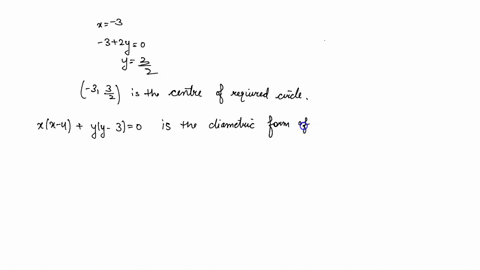 x = -3
-3 + 2y = 0
y = 3/2
(-3, 3/2) is the centre of required circle.
x(x-4) + y(y-3) = 0 is the diametric form of